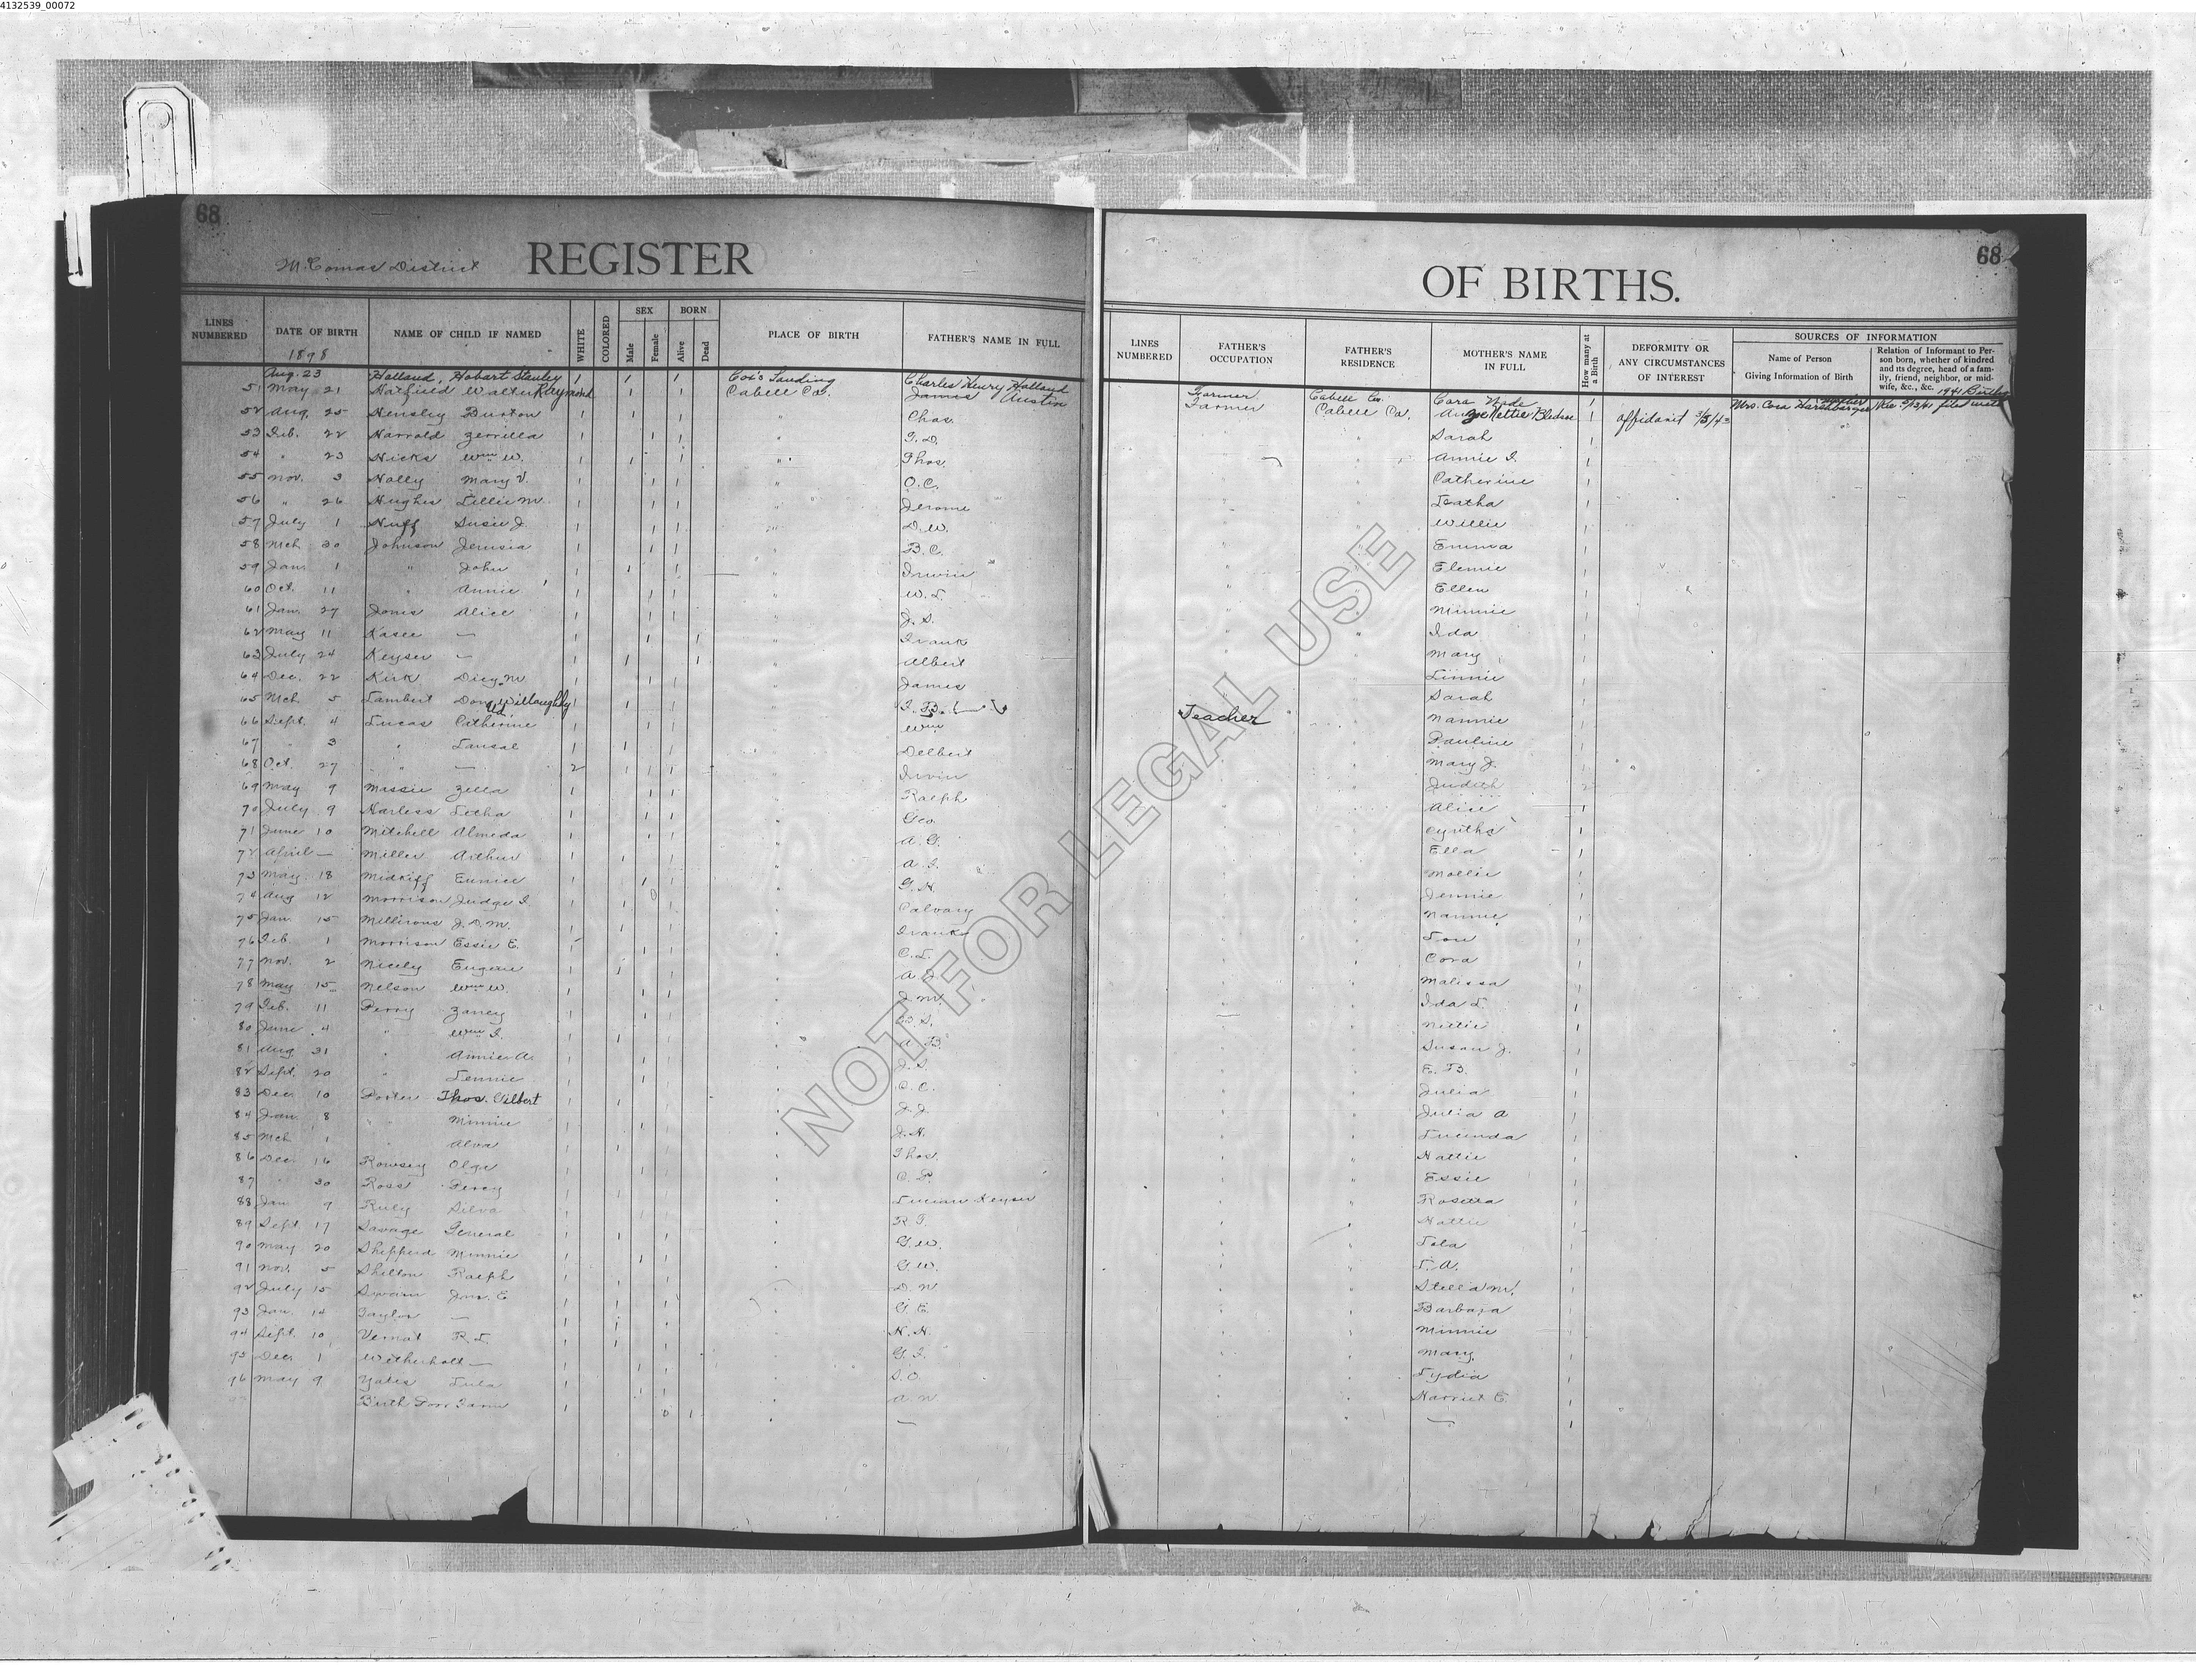 4132539_00072
68
McComas District REGISTER
LINES NUMBERED DATE OF BIRTH NAME OF CHILD IF NAMED WHITE COLORED SEX Male Female BORN Alive Dead PLACE OF BIRTH FATHER'S NAME IN FULL
1898
Aug. 23 Holland, Hobart Stanley 1 1 1 Cox's Landing Charles Henry Holland
51 May 21 Hatfield Walter Raymond 1 1 1 Cabell Co. James Austin
52 Aug. 25 Hensley Burton 1 1 1 " Chas.
53 Feb. 22 Harrold Zerrilla 1 1 1 " T. D.
54 " 23 Hicks Wm W. 1 1 1 " Thos.
55 Nov. 3 Holly Mary V. 1 1 1 " O. C.
56 " 26 Hughes Lillie M. 1 1 1 " Jerome
57 July 1 Huff Susie J. 1 1 1 " D. W.
58 Mch 30 Johnson Jerusia 1 1 1 " B. C.
59 Jan. 1 " John 1 1 1 " Irwin
60 Oct. 11 " Annie 1 1 1 " W. L.
61 Jan. 27 Jones Alice 1 1 1 " J. S.
62 May 11 Kasee — 1 1 1 " Frank
63 July 24 Keyser — 1 1 1 " Albert
64 Dec. 22 Kirk Dicy M. 1 1 1 " James
65 Mch 5 Lambert Don Willoughby 1 1 1 " T. B.
66 Sept. 4 Lucas Catherine 1 1 1 " Wm
67 " 3 " Lansal 1 1 1 " Delbert
68 Oct. 27 " — 2 1 1 1 " Irvin
69 May 9 Massie Zella 1 1 1 " Ralph
70 July 9 Harless Letha 1 1 1 " Geo.
71 June 10 Mitchell Almeda 1 1 1 " A. G.
72 April — Miller Arthur 1 1 1 " A. I.
73 May 18 Midkiff Eunice 1 1 1 " G. H.
74 Aug 12 Morrison Judge I. 1 1 1 " Calvary
75 Jan. 15 Millirons J. D. M. 1 1 1 " Frank
76 Feb. 1 Morrison Essie E. 1 1 1 " C. L.
77 Nov. 2 Nicely Eugene 1 1 1 "
78 May 15 Nelson Wm W. 1 1 1 " J. M.
79 Feb. 11 Perry Zancy 1 1 1 "
80 June 4 " Wm I. 1 1 1 " A. B.
81 Aug 31 " Annie A. 1 1 1 " J. S.
82 Sept. 20 " Lennie 1 1 1 " C. C.
83 Dec. 10 Porter Thos. Gilbert 1 1 1 " J. J.
84 Jan. 8 " Minnie 1 1 1 " J. H.
85 Mch 1 " Alva 1 1 1 " Thos.
86 Dec. 16 Rowsey Olga 1 1 1 "
87 " 30 Ross Percy 1 1 1 " Lucian Keyser
88 Jan 9 Ruly Silva 1 1 1 " R. T.
89 Sept. 17 Savage General 1 1 1 " G. W.
90 May 20 Shepperd Minnie 1 1 1 " G. W.
91 Nov. 5 Shelton Ralph 1 1 1 " D. N
92 July 15 Swain Jno. E 1 1 1 " G. E.
93 Jan. 14 Taylor — 1 1 1 " H. H.
94 Sept. 10 Vernat R. L. 1 1 1 " G. I.
95 Dec. 1 Witherholt — 1 1 1 " S. O.
96 May 9 Yates Lula 1 1 1 " A. W.
Birth Poor Farm 1 0 1 " —
68
OF BIRTHS.
LINES NUMBERED FATHER'S OCCUPATION FATHER'S RESIDENCE MOTHER'S NAME IN FULL How many at a Birth DEFORMITY OR ANY CIRCUMSTANCES OF INTEREST SOURCES OF INFORMATION
Name of Person Giving Information of Birth
Relation of Informant to Person born, whether of kindred and its degree, head of a family, friend, neighbor, or midwife, &c., &c.
Farmer Cabell Co. Cora Wade 1 Mrs. Cora Harshbarger Mother Rec. 9/3/41 filed with 1941 Births
Farmer Cabell Co. Nettie Bledsoe 1 affidavit 3/5/43
Sarah 1
Annie I. 1
Catherine 1
Leatha 1
Willie 1
Emma 1
Elemie 1
Ellen 1
Minnie 1
Ida 1
Mary 1
Linnie 1
Sarah 1
Teacher Nannie 1
Pauline 1
Mary J. 1
Judith 2
Alice 1
Cyntha 1
Ella 1
Mollie 1
Jennie 1
Nannie 1
Lou 1
Cora 1
Malissa 1
Ida L. 1
Nettie 1
Susan J. 1
E. B. 1
Julia 1
Julia A 1
Lucinda 1
Hattie 1
Essie 1
Rosetta 1
Hattie 1
Lola 1
L. A. 1
Stella M. 1
Barbara 1
Minnie 1
Mary 1
Lydia 1
Harriet E. 1
— 1
NOT FOR LEGAL USE